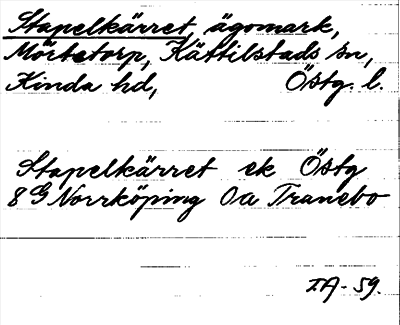 Stapelkärret, ägomark,
Mörtetorp, Kättilstads sn,
Kinda hd, Östg. l.
Stapelkärret ek Östg
8 G Norrköping 0a Tranebo
IA-59.